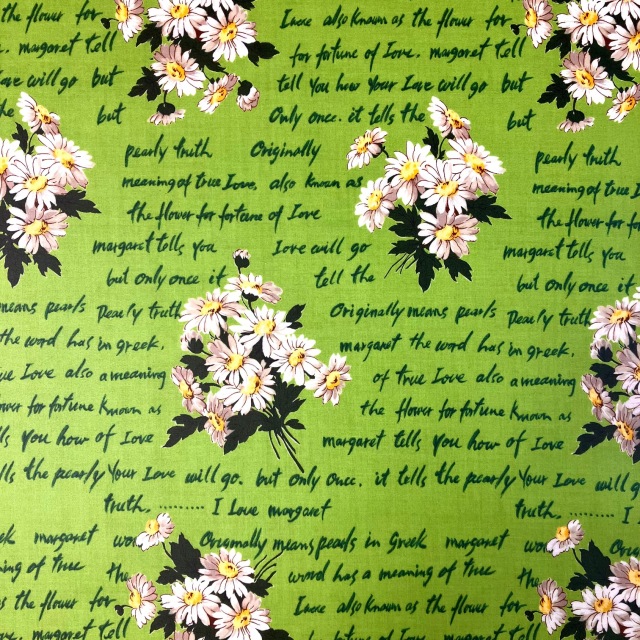 the flower for Love also known as the flower for
. margaret tell for fortune of Love. margaret tell
Love will go but tell You how Your Love will go but
the but Only once. it tells the but
pearly truth Originally pearly truth
meaning of true Love, also known as meaning of true
the flower for fortune of Love the flower for
margaret tells you Love will go margaret tells you
but only once it tell the but only once it
means pearls Pearly truth Originally means pearls Pearly truth
the word has in greek, margaret the word has in greek,
Love also a meaning of true Love also a meaning
for fortune known as the flower for fortune known as
You how of Love margaret tells You how of Love
the pearly Your Love will go. but only once. it tells the pearly Your Love will
truth. ......... I Love margaret truth. ......... I
margaret Originally means pearls in Greek margaret
of true the word has a meaning of true the
the flower for Love also known as the flower for
margaret tell for fortune of Love. margaret tell